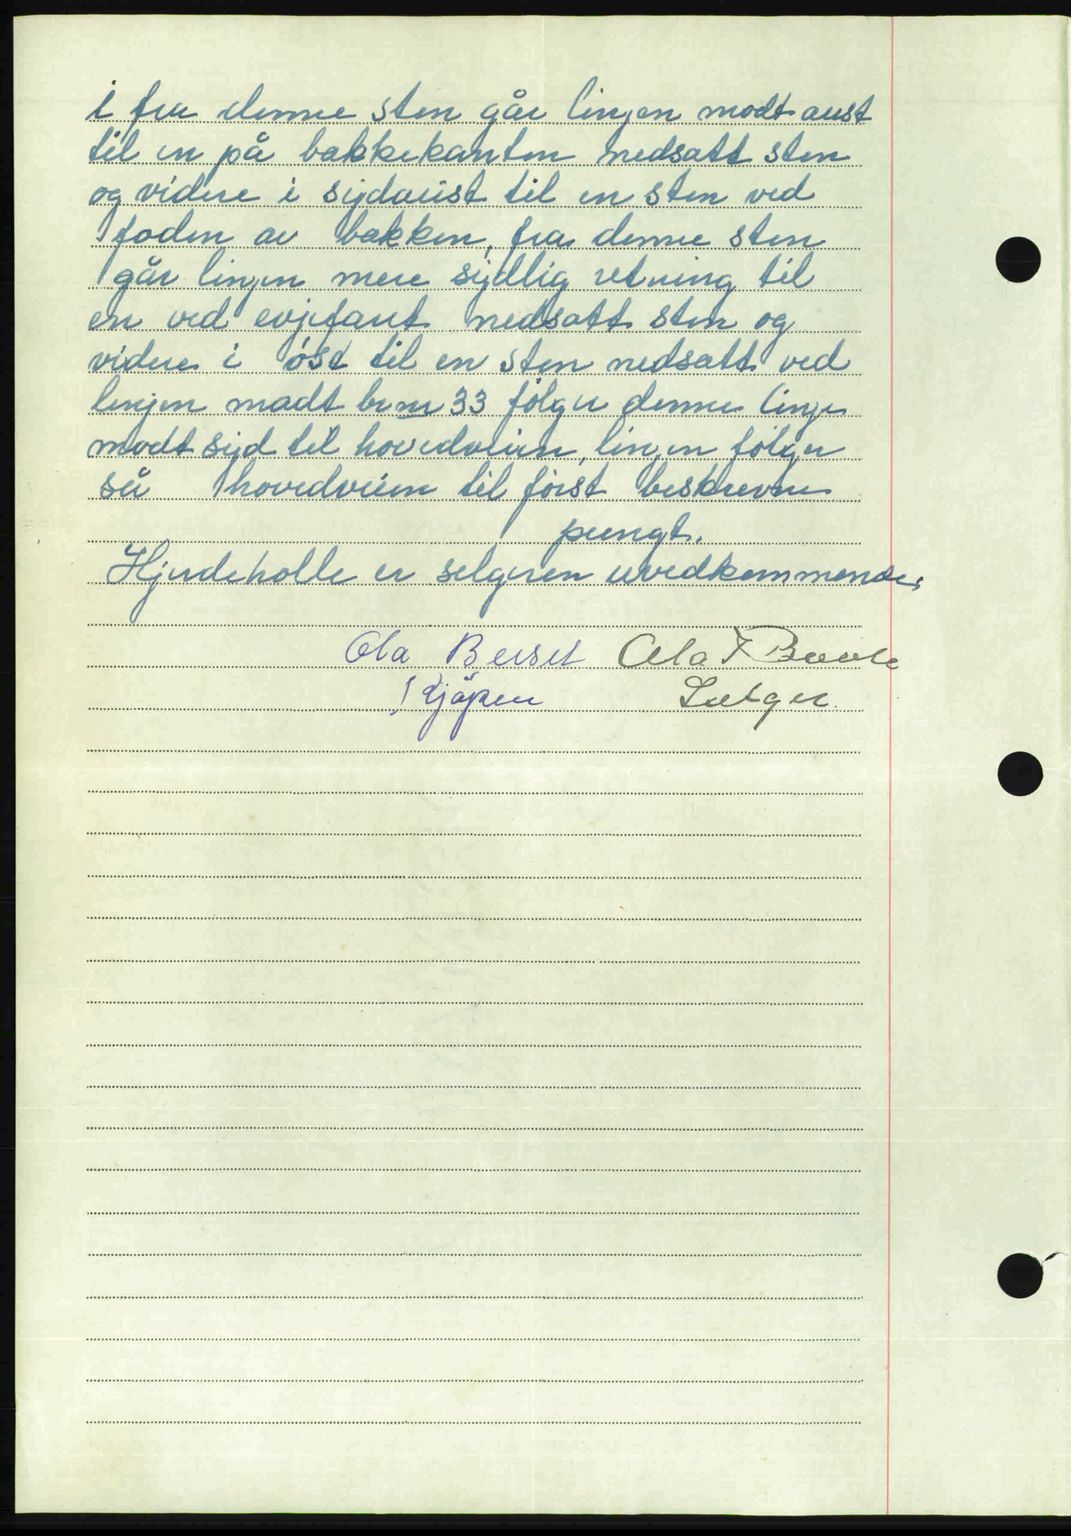 i fra denne sten går linjen modt aust
til en på bakkekanten nedsatt sten
og videre i sydaust til en sten ved
foden av bakken, fra denne sten
går linjen mere sydlig retning til
en ved evjefaut nedsatt sten og
videre i öst til en sten nedsatt ved
linjen madt br nr 33 fölger denne linje
modt syd til hovedveien, linjen fölger
så hovedveien til först beskrevne
pungt.
Hjerdeholle er selgeren uvedkommende.
Ola Berset Ola F
Kjöper Selger